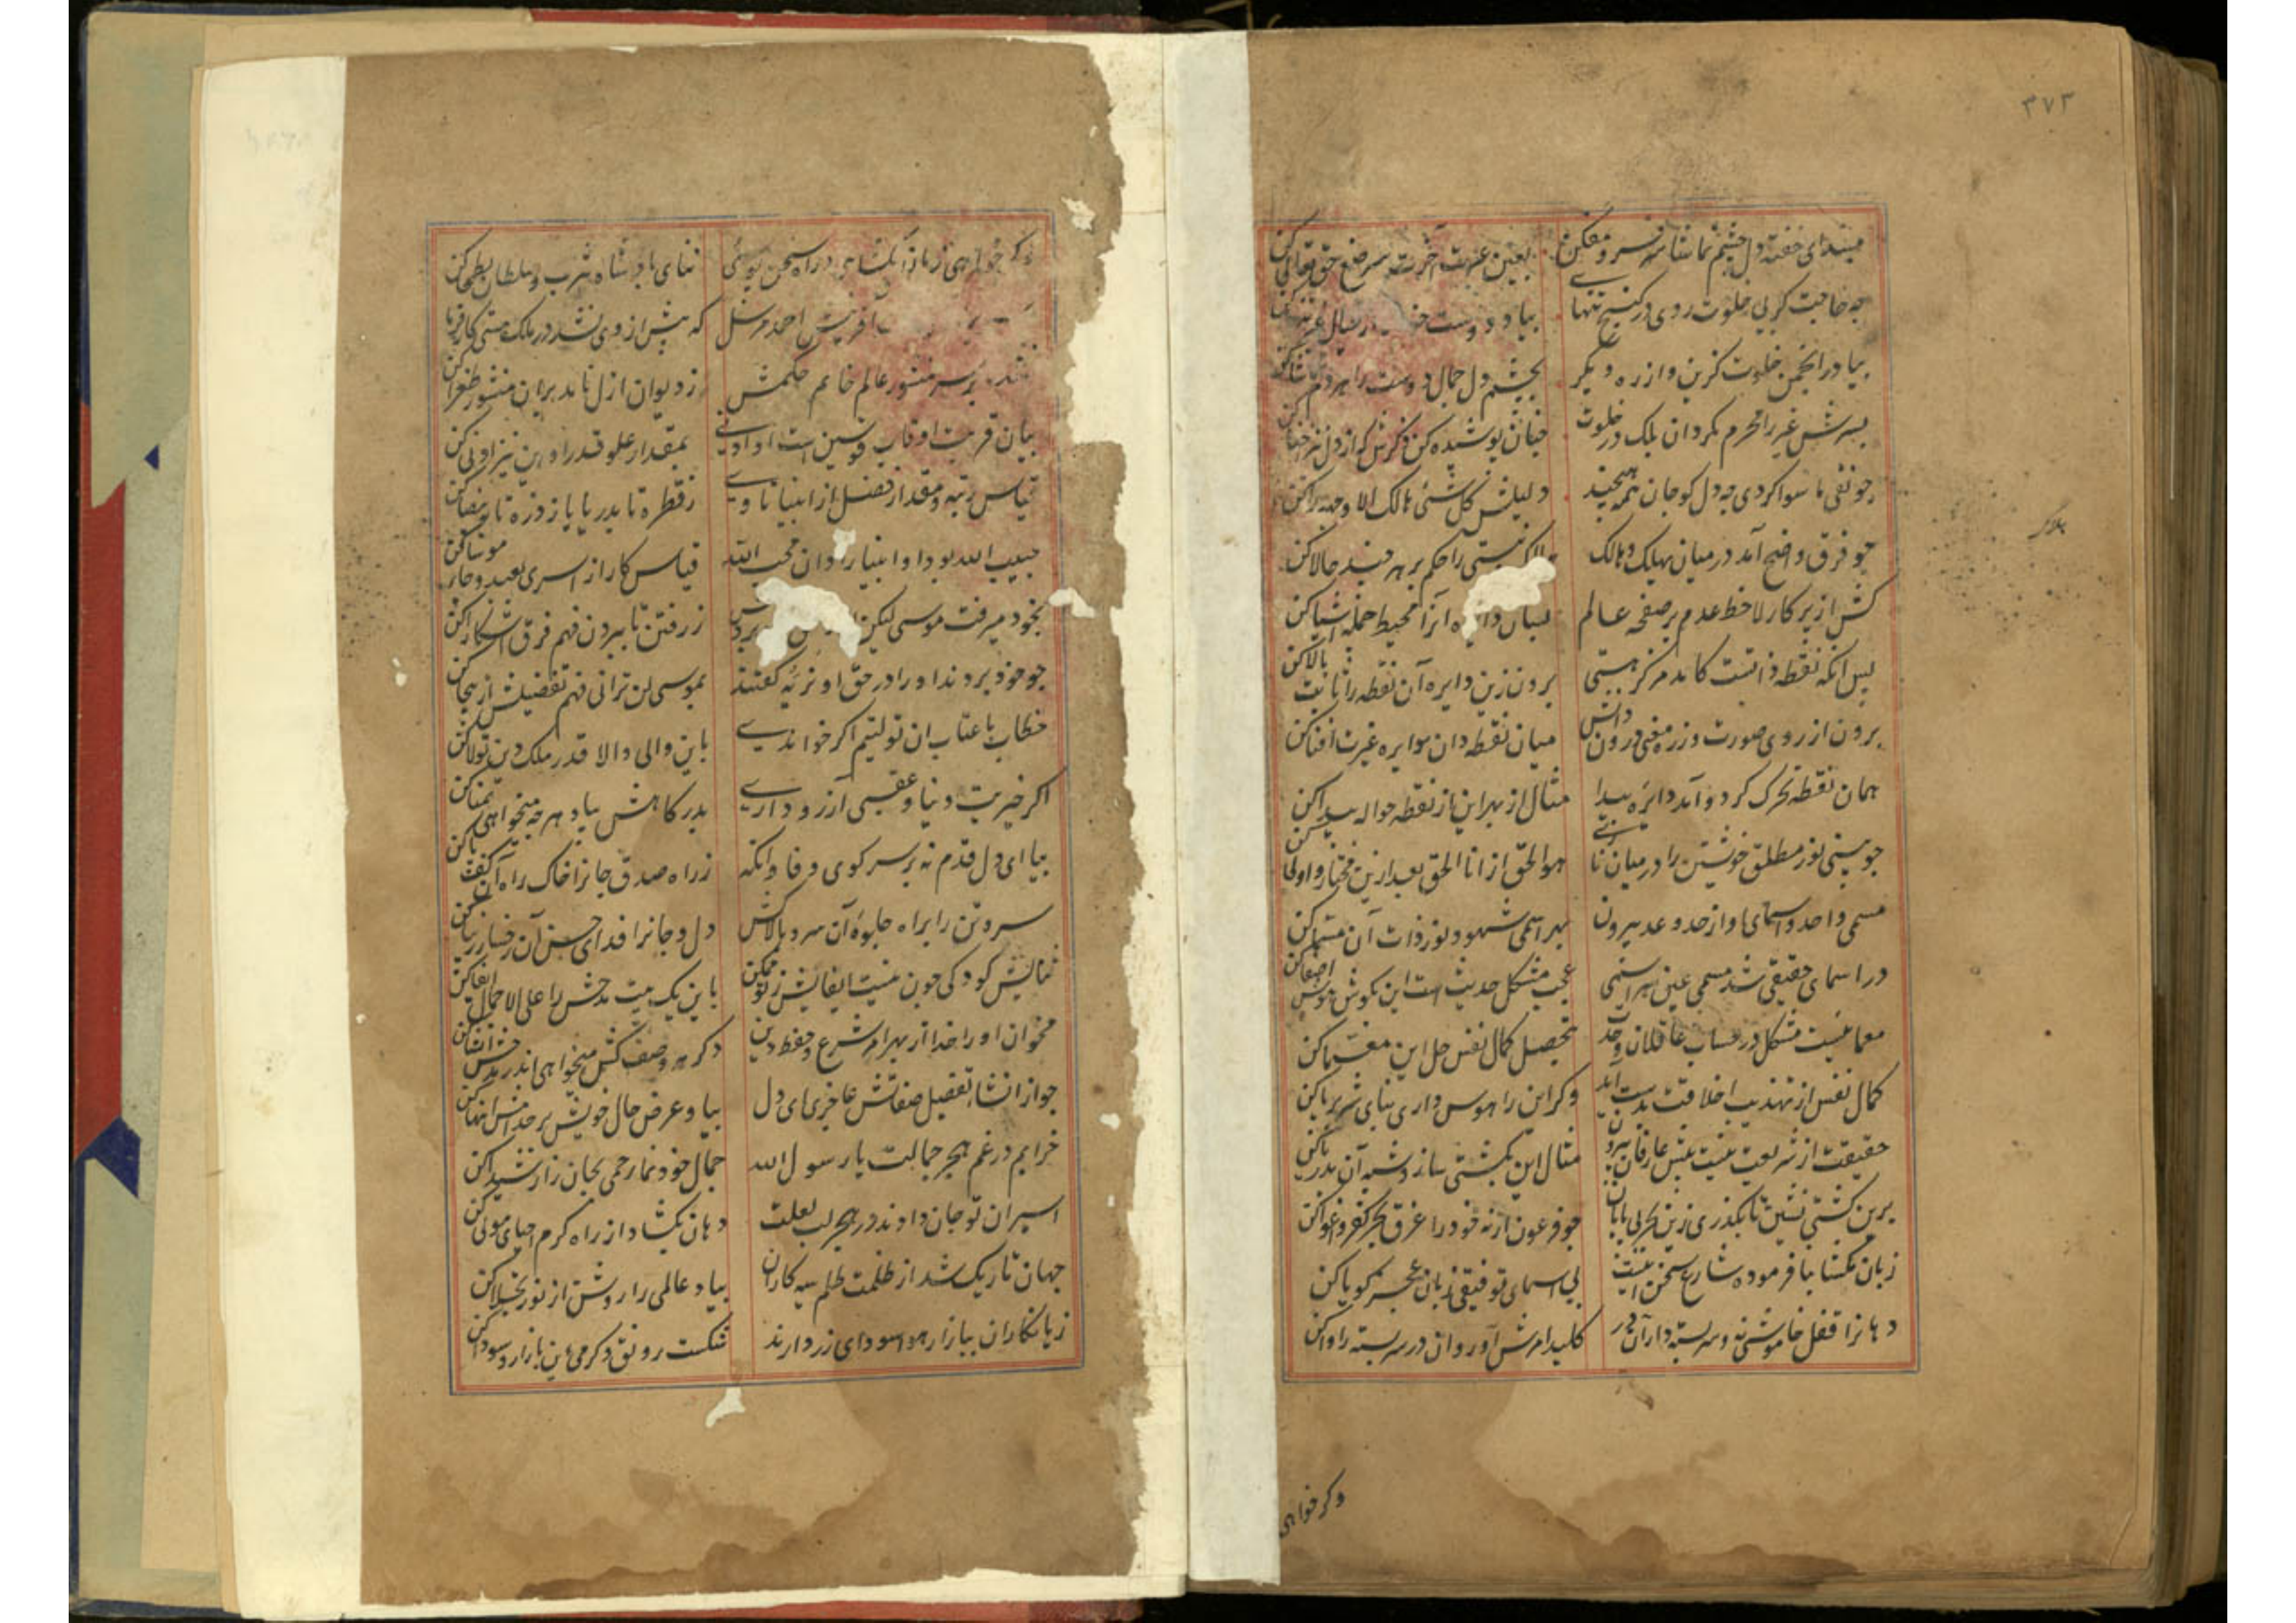 ۳۷۳
ببند ای خفته دل چشم تماشا
بعین عبرت آخرت صنع حق تعالی کن
چه حاجت کز پی خلوت روی در کنج تنها
بیا و دوست
بیا در انجمن خلوت گزین و از ره دیگر
بچشم دل جمال دوست را هر دم تماشا کن
بسرش غیر را محرم مگردان بلک در خلوت
چنان پوشیده کن ذکرش که از دل نیز اخفا کن
چو نفی ما سوا کردی چه دل کو جان همه هیچند
دلیلش کل شیٔ هالک الا وجهه را کن
چو فرق واضح آمد در میان یهلک و هالک
نیستی را حکم بر هر چند حالا کن
کش از پرکار لا خط عدم بر صفحه عالم
بسان دایره آنرا محیط جمله اشیا کن
پس انکه نقطه ذاتست کامد مرکز هستی
برون زین دایره آن نقطه را ثابت بالا کن
برون از روی صورت وز ره معنی درون دانش
میان نقطه دان سوایره غیرت افنا کن
همان نقطه تحرک کرد و آمد دایره پیدا
مثال از بهر این از نقطه جواله پیدا کن
چو بینی نور مطلق خویشتن را در میان
هو الحق از انا الحق بعد ازین مختار و اولی کن
مسمی واحد و اسمای او از حد و عد بیرون
بهر اسمی شهود نور ذات آن مسما کن
در اسمای حقیقی شد مسمی عین هر اسمی
عجب مشکل حدیث است این بگوش هوش اصغا کن
معمائیست مشکل در حساب عاقلان وحدت
بتحصیل کمال نفس حل این معما کن
کمال نفس از تهذیب اخلاقت بدست آید
وگر این را هوس داری بنای شرع بر پا کن
حقیقت از شریعت نیست پیش عارفان بیرون
مثال این بکشتی ساز و شبه آن بدریا کن
برین کشتی نشین تا بگذری زین بحر بی پایان
چو فرعون ارنه خود را غرق بحر کفر و اغوا کن
زبان مگشا بنا فرموده شارع سخن اینست
بی اسمای توفیقی زبان عجز گویا کن
دهانرا قفل خاموشی نه و سر بسته دار آن در
کلید امرش آور وان در سر بسته را وا کن
هلاک
وکر خواهی
وکر خواهی زبانرا بگشایی در راه سخن پوئی
ثنای پادشاه یثرب و سلطان بطحا کن
آفرینش احمد مرسل
که پیش از وی نشد در ملک هستی کارفرما کن
بر سر منشور عالم خاتم حکمش
ز دیوان ازل نامد بران منشور طغرا کن
بیان قربت او قاب قوسین است او ادنی
بمقدار علو قدر او این نیز ادنی کن
قیاس رتبه و مقدار فضل از انبیا تا وی
ز قطره تا بدریا یا ز ذره تا به بیضا کن
حبیب الله بود او و انبیا را دان محب الله
قیاس کار از اسری بعبده و جاء موسی کن
بخود میرفت موسی لیکن
ز رفتن تا ببردن فهم فرق آشکارا کن
چو خود بردند او را در حق او نزیه گفتند
بموسی لن ترانی فهم تفضیلش از ینجا کن
خطاب با عتاب ان تولیتم اگر خواندی
باین والی والا قدر ملک دین تولا کن
اگر خیریت دنیا و عقبی آرزو داری
بدرگاهش بیا و هر چه میخواهی تمنا کن
بیا ای دل قدم نه بر سر کوی وفا وانکه
ز راه صدق جانرا خاک راه آن کف پا کن
سر و تن را براه جلوهٔ آن سرو بالا کش
دل و جانرا فدای حسن آن رخسار زیبا کن
ثنایش گو دگی چون نیست ایفایش ز تو ممکن
باین یک بیت مدحش را علی الاجمال ایفا کن
مخوان او را خدا از بهر امر شرع و حفظ دین
دگر هر وصف کش میخواهی اندر مدحش انشا کن
چو از انشاء تفصیل صفاتش عاجزی ای دل
بیا و عرض حال خویش بر خدامش انها کن
خرابم در غم هجر جمالت یا رسول الله
جمال خود نما رحمی بجان زار شیدا کن
اسیران تو جان دادند در هجر لب لعلت
دهان بگشا و از راه کرم احیای موتی کن
جهان تاریک شد از ظلمت ظلم سیه کاران
بیا و عالمی را روشن از نور تجلا کن
زیانکاران ببازار هوا سودای زر دارند
شکست رونق و گرمی این بازار و سودا کن